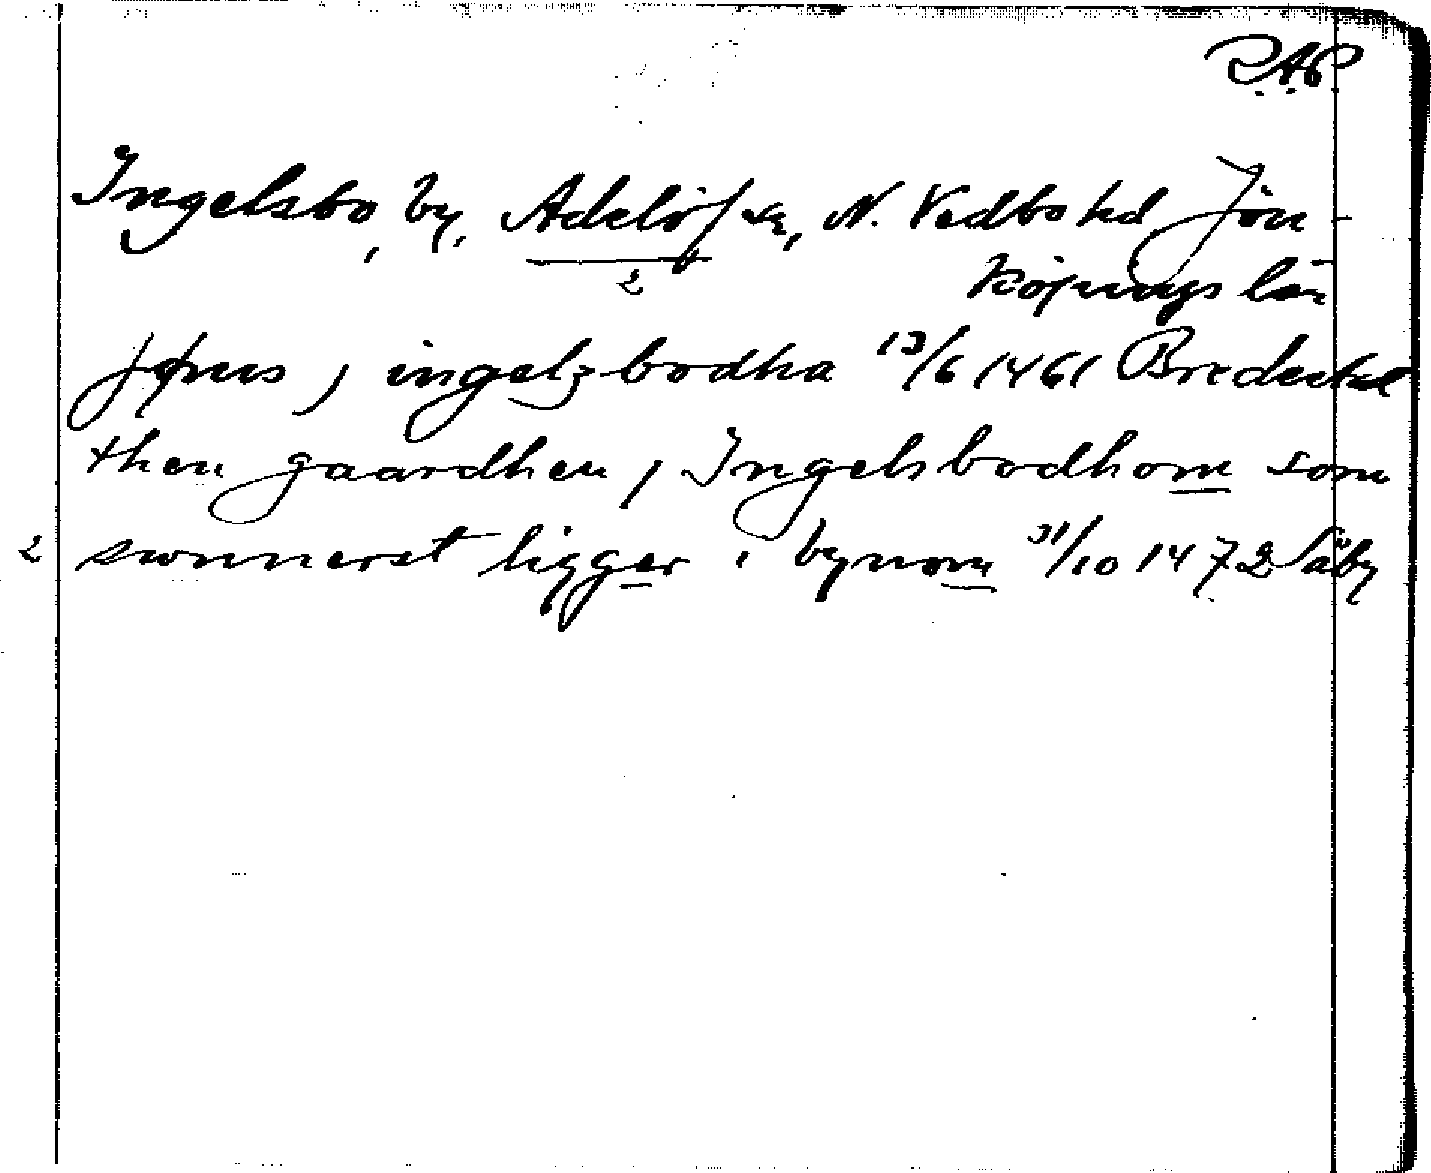 R.A.P.
Ingelsbo, by, Adelöf sn, N. Vedbo hd Jön-
2 köpings län
jønis j ingelzbodha 13/6 1461 Bredestad
then gaardhen j Ingelsbodhom som
2 swnnerst ligger i bynom 31/10 1472 Säby